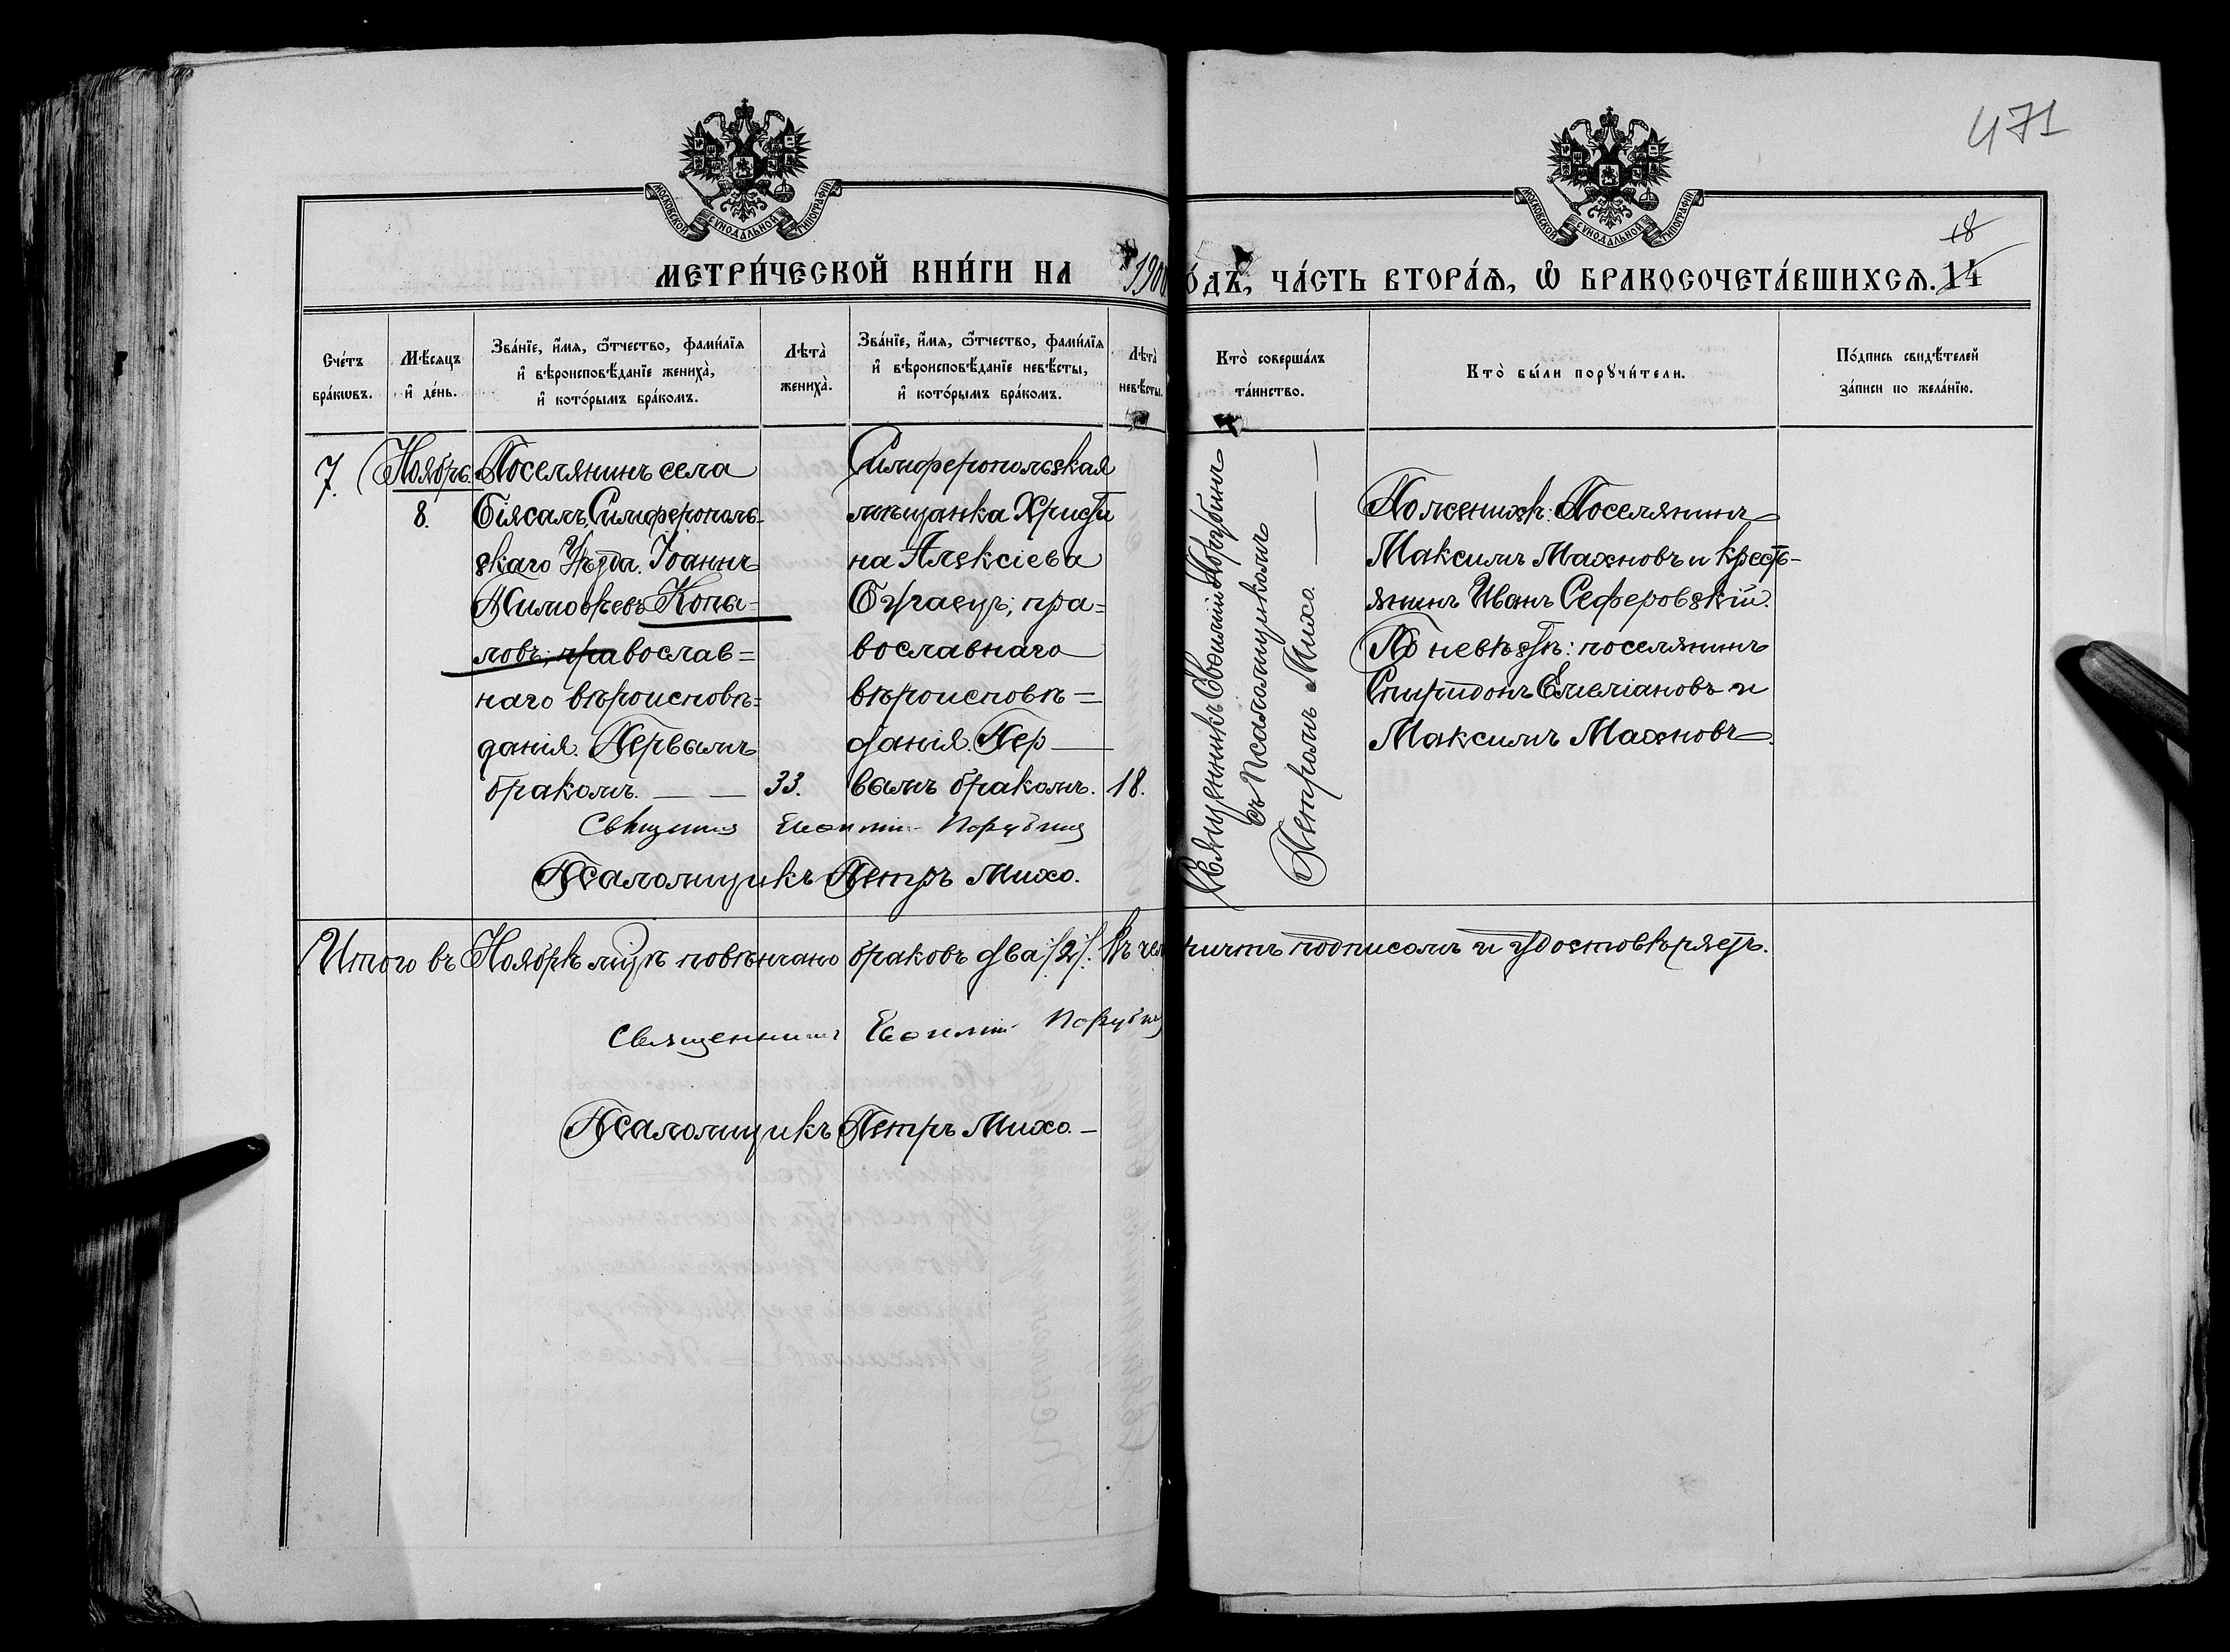 471
МОСКОВСКОЙ СУНОДАЛЬНОЙ ТИПОГРАФІИ
МОСКОВСКОЙ СУНОДАЛЬНОЙ ТИПОГРАФІИ
18
МЕТРИ́ЧЕСКОЙ КНИ́ГИ НА 1900 ГО́ДЪ, ЧА́СТЬ ВТОРА́Ѧ, Ѽ БРАКОСОЧЕТА́ВШИХСѦ. 14
Сче́тъ
бра́кѡвъ.
Мѣ́сяцъ
и҆ де́нь.
Зва́нїе, и҆́мѧ, ѻ҆́тчество, фами́лїѧ
и҆ вѣроисповѣ́данїе жениха̀,
и҆ кото́рымъ бра́комъ.
Лѣта̀
жениха̀.
Зва́нїе, и҆́мѧ, ѻ҆́тчество, фами́лїѧ
и҆ вѣроисповѣ́данїе невѣ́сты,
и҆ кото́рымъ бра́комъ.
Лѣта̀
невѣ́сты.
Кто̀ соверша́лъ
та́инство.
Кто̀ бы́ли порꙋчи́тели.
По́дпись свидѣ́телей
за́писи по жела́нїю.
7.
Ноябрь
8.
Поселянинъ села
Біясалъ, Симферополь-
скаго Уѣзда. Іоаннъ
Тимоѳеевъ Копа-
ловъ; православ=
наго вѣроисповѣ=
данія. Первымъ
бракомъ. — —
33.
Симферопольская
мѣщанка Христи
на Алексіева
Бугаецъ; пра=
вославнаго
вѣроисповѣ=
данія. Пер—
вымъ бракомъ.
18.
Священникъ Евѳимій Порубинъ
съ Псаломщикомъ
Петромъ Михо. — —
По женихѣ: Поселянинъ
Максимъ Махновъ и крест-
янинъ Иванъ Сеферовскій.
По невѣстѣ: поселянинъ
Спиридонъ Емеліановъ и
Максимъ Махновъ.
Священникъ Евѳимій Порубинъ
Псаломщикъ Петръ Михо.
Итого въ Ноябрѣ мцѣ повѣнчано браковъ два /2/. Въ чемъ причтъ подписомъ и удостовѣряетъ.
Священникъ Евѳимій Порубинъ
Псаломщикъ Петръ Михо. —